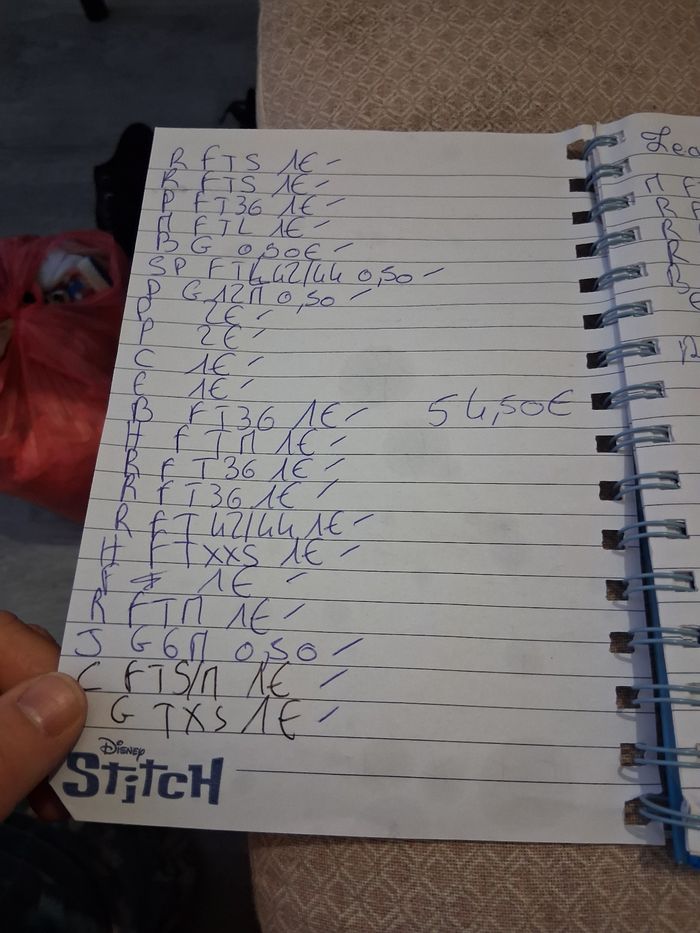 R FTS 1€ -
R FTS 1€ -
P FT36 1€ -
M FTL 1€ -
B G 0,50€ -
SP FT42/44 0,50 -
P G12M 0,50 -
P 2€ -
P 2€ -
C 1€ -
E 1€ -
B FT36 1€ - 54,50€
H FTM 1€ -
R FT36 1€ -
R FT36 1€ -
R FT42/44 1€ -
H FTXXS 1€ -
F 1€ -
R FTM 1€ -
J G6M 0,50 -
C FTS/M 1€ -
G TXS 1€ -
DISNEY
StitcH